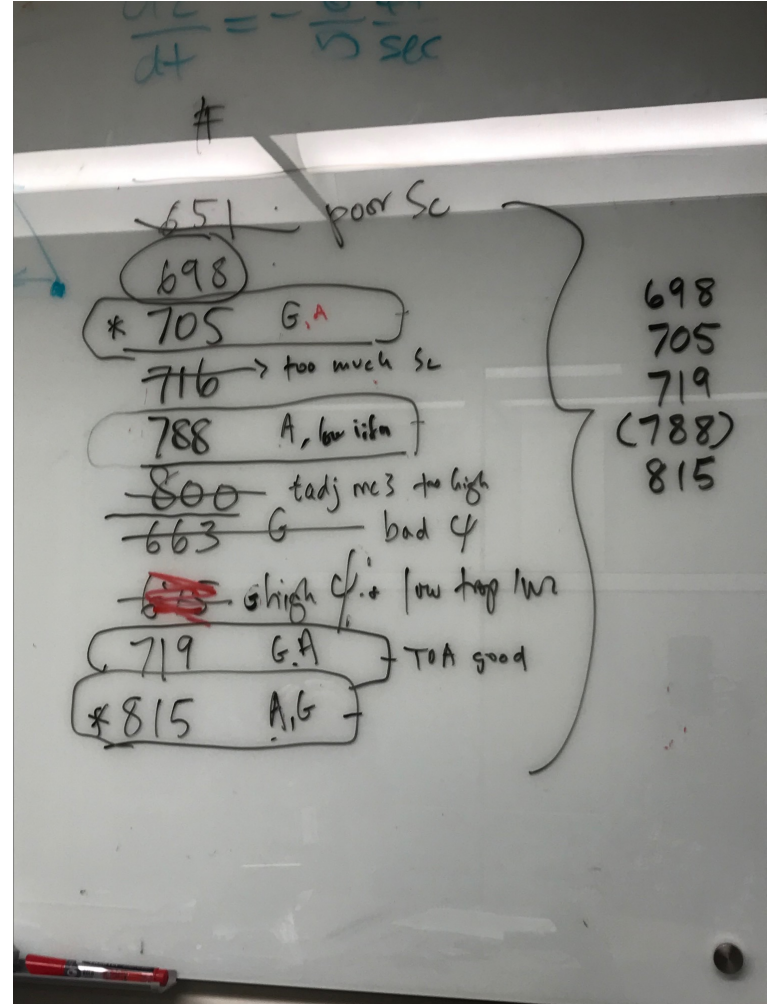 dt = - 5 sec
#
651 poor Sc
698
* 705 G, A
716 > too much Sc
788 A, low
800 tadj mc3 too high
663 G bad
high low
719 G.A TOA good
* 815 A, G
698
705
719
(788)
815